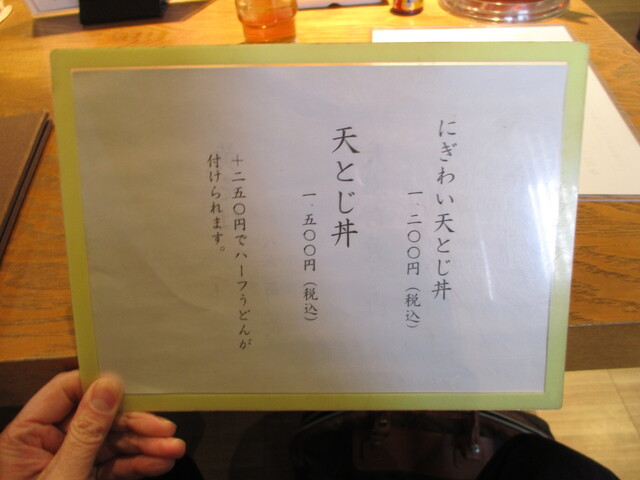 にぎわい天とじ丼
一、二〇〇円（税込）
天とじ丼
一、五〇〇円（税込）
＋二五〇円でハーフうどんが
付けられます。